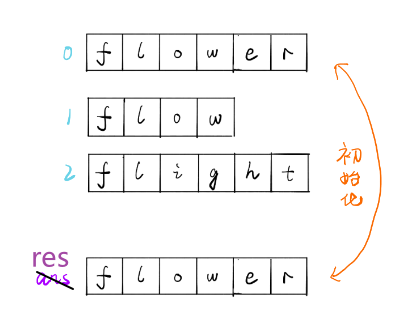 0 f l o w e r
1 f l o w
2 f l i g h t
初始化
res
ans
f l o w e r